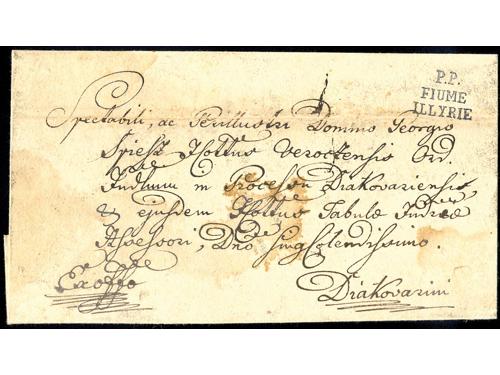 P.P.
FIUME
ILLYRIE
Spectabili, ac Perillustri Domino Georgio
Spiesz Veroczensis Ord.
Judlium in Processu Diakovariensi,
& ejusdem Tabulæ
Assessori, Dno Colendissimo.
Diakovarini